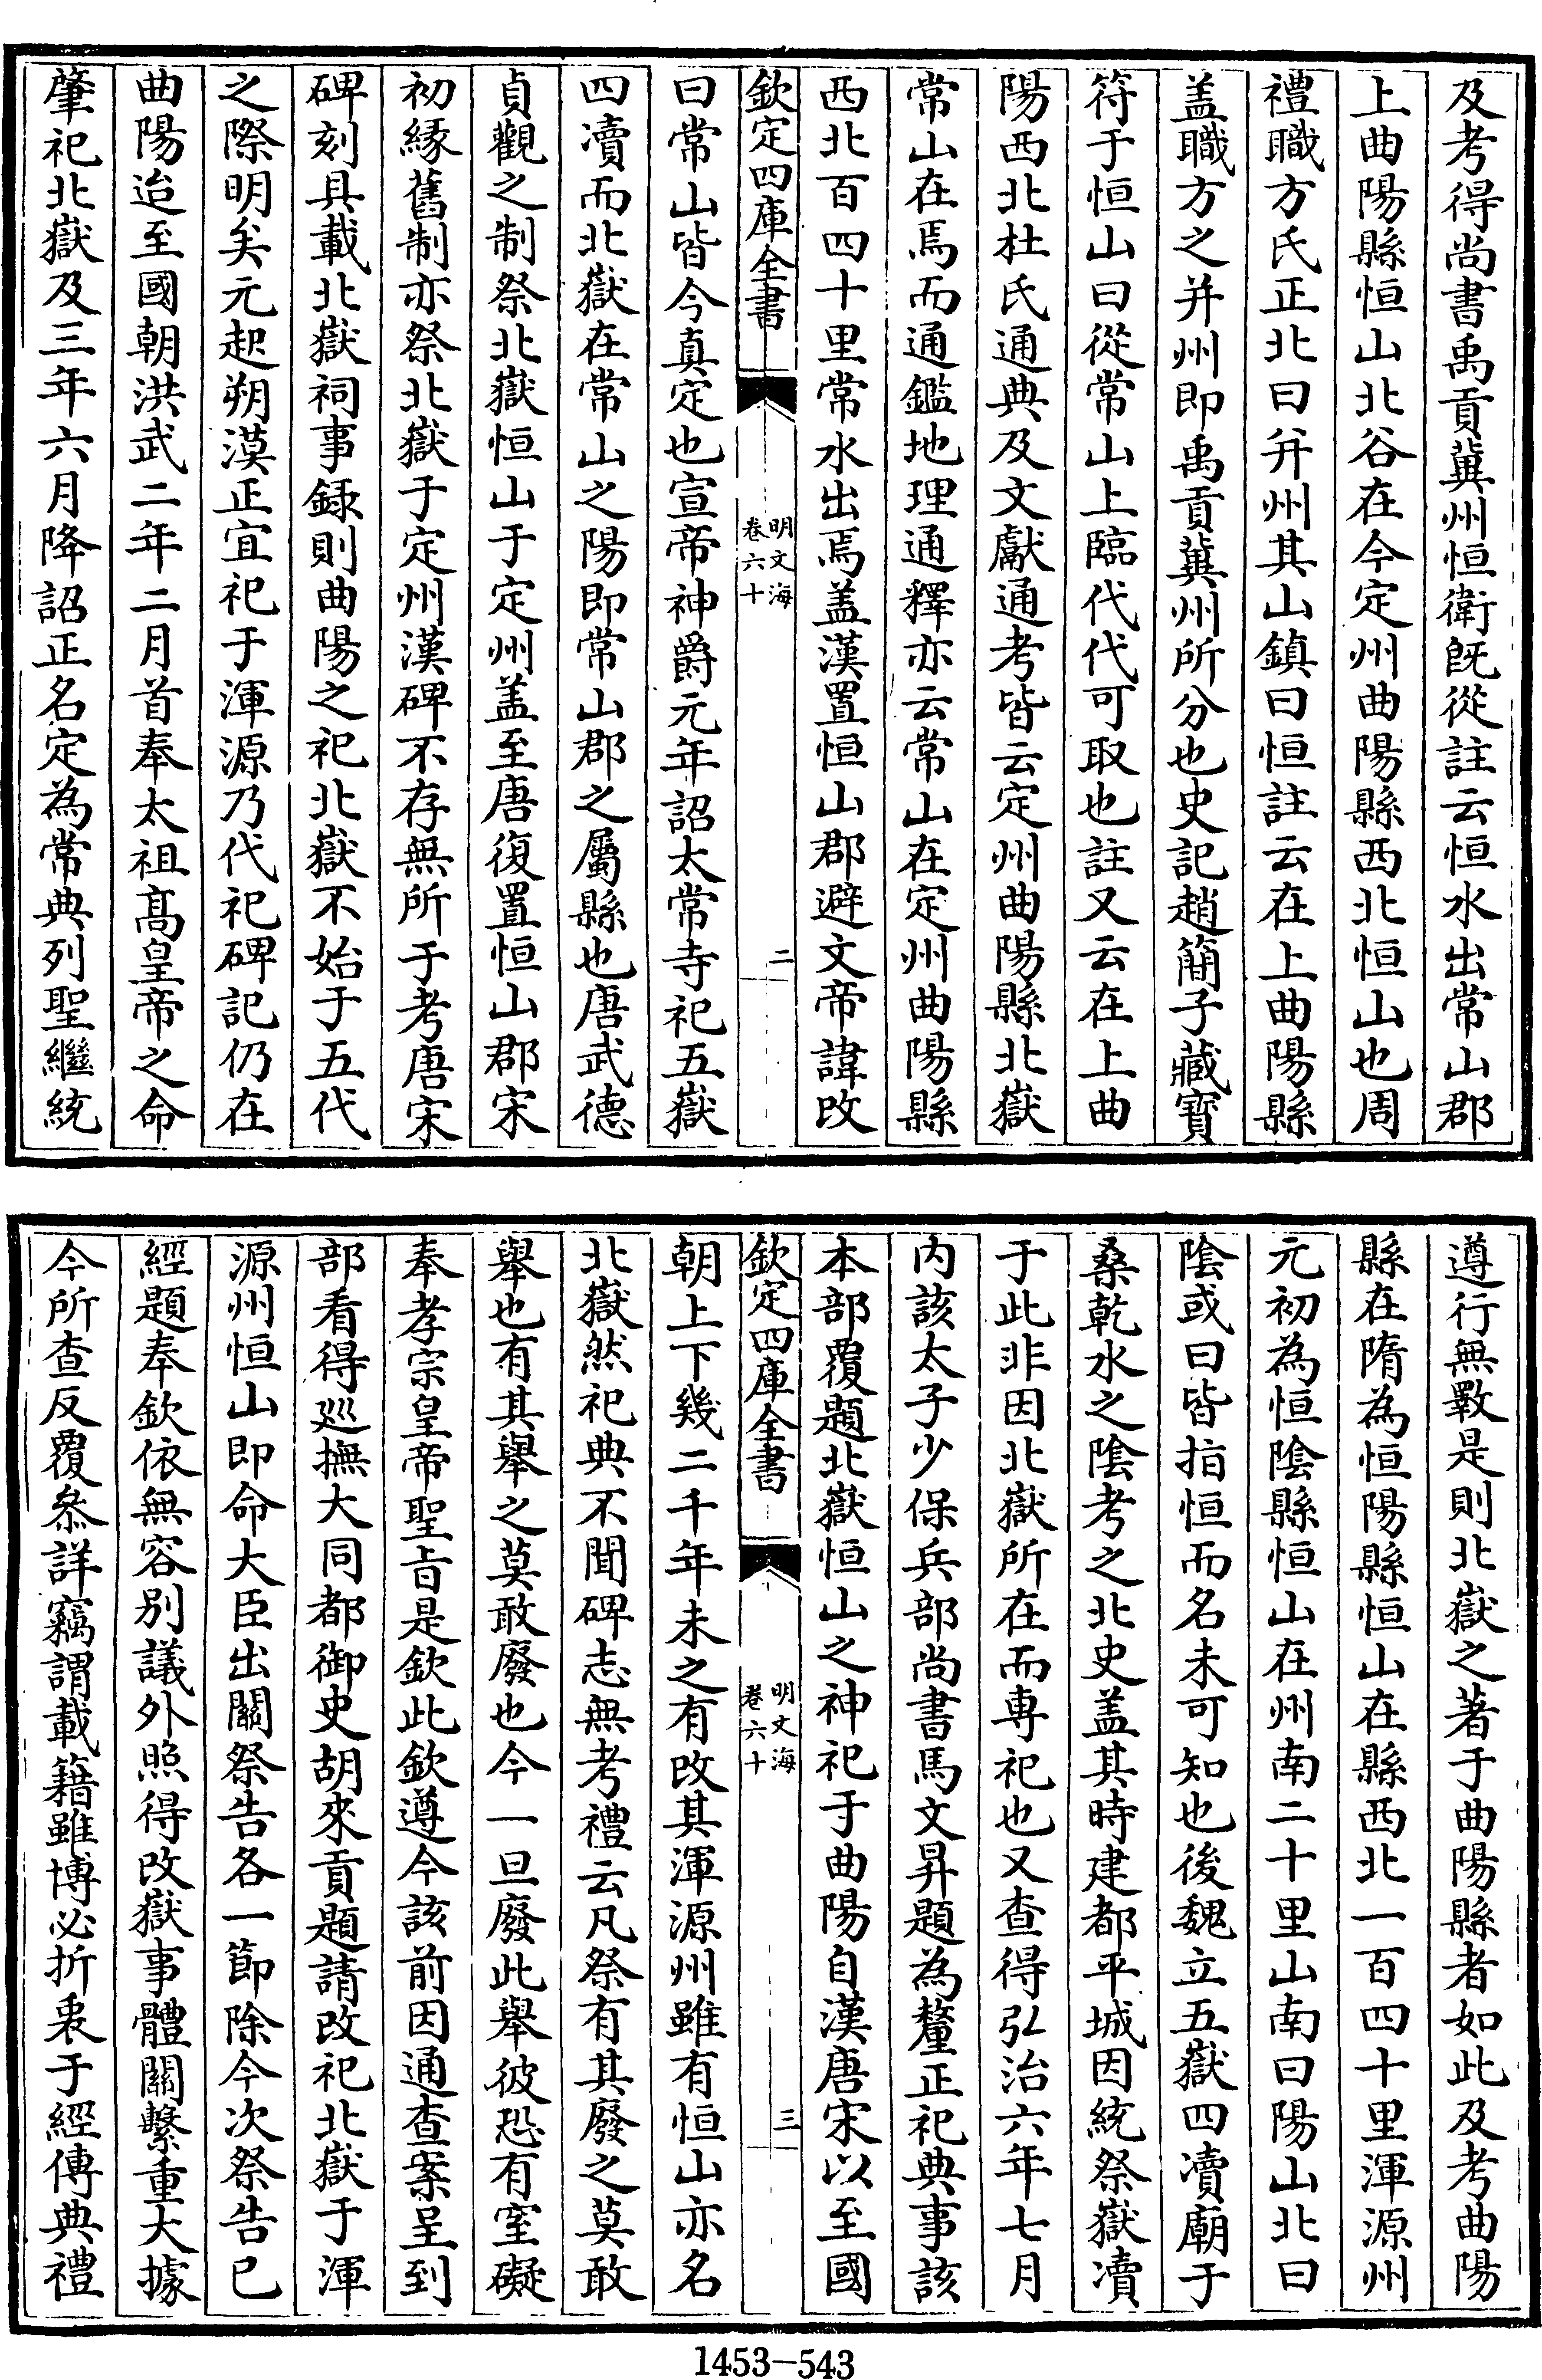 及考得尚書禹貢冀州恒衛既從註云恒水出常山郡
上曲陽縣恒山北谷在今定州曲陽縣西北恒山也周
禮職方氏正北曰并州其山鎮曰恒註云在上曲陽縣
盖職方之并州即禹貢冀州所分也史記趙簡子藏寳
符于恒山曰從常山上臨代代可取也註又云在上曲
陽西北杜氏通典及文獻通考皆云定州曲陽縣北嶽
常山在焉而通鑑地理通釋亦云常山在定州曲陽縣
西北百四十里常水出焉盖漢置恒山郡避文帝諱改
欽定四庫全書
明文海
卷六十
二
曰常山皆今真定也宣帝神爵元年詔太常寺祀五嶽
四瀆而北嶽在常山之陽即常山郡之屬縣也唐武德
貞觀之制祭北嶽恒山于定州盖至唐復置恒山郡宋
初緣舊制亦祭北嶽于定州漢碑不存無所于考唐宋
碑刻具載北嶽祠事録則曲陽之祀北嶽不始于五代
之際明矣元起朔漠正宜祀于渾源乃代祀碑記仍在
曲陽迨至國朝洪武二年二月首奉太祖髙皇帝之命
肇祀北嶽及三年六月降詔正名定為常典列聖繼統
遵行無斁是則北嶽之著于曲陽縣者如此及考曲陽
縣在隋為恒陽縣恒山在縣西北一百四十里渾源州
元初為恒陰縣恒山在州南二十里山南曰陽山北曰
陰或曰皆指恒而名未可知也後魏立五嶽四瀆廟于
桑乾水之陰考之北史盖其時建都平城因統祭嶽瀆
于此非因北嶽所在而專祀也又查得弘治六年七月
内該太子少保兵部尚書馬文昇題為釐正祀典事該
本部覆題北嶽恒山之神祀于曲陽自漢唐宋以至國
欽定四庫全書
明文海
卷六十
三
朝上下幾二千年未之有改其渾源州雖有恒山亦名
北嶽然祀典不聞碑志無考禮云凡祭有其廢之莫敢
舉也有其舉之莫敢廢也今一旦廢此舉彼恐有窒礙
奉孝宗皇帝聖旨是欽此欽遵今該前因通查案呈到
部看得廵撫大同都御史胡來貢題請改祀北嶽于渾
源州恒山即命大臣出關祭告各一節除今次祭告已
經題奉欽依無容别議外照得改嶽事體關繫重大據
今所查反覆叅詳竊謂載籍雖博必折衷于經傳典禮
1453—543